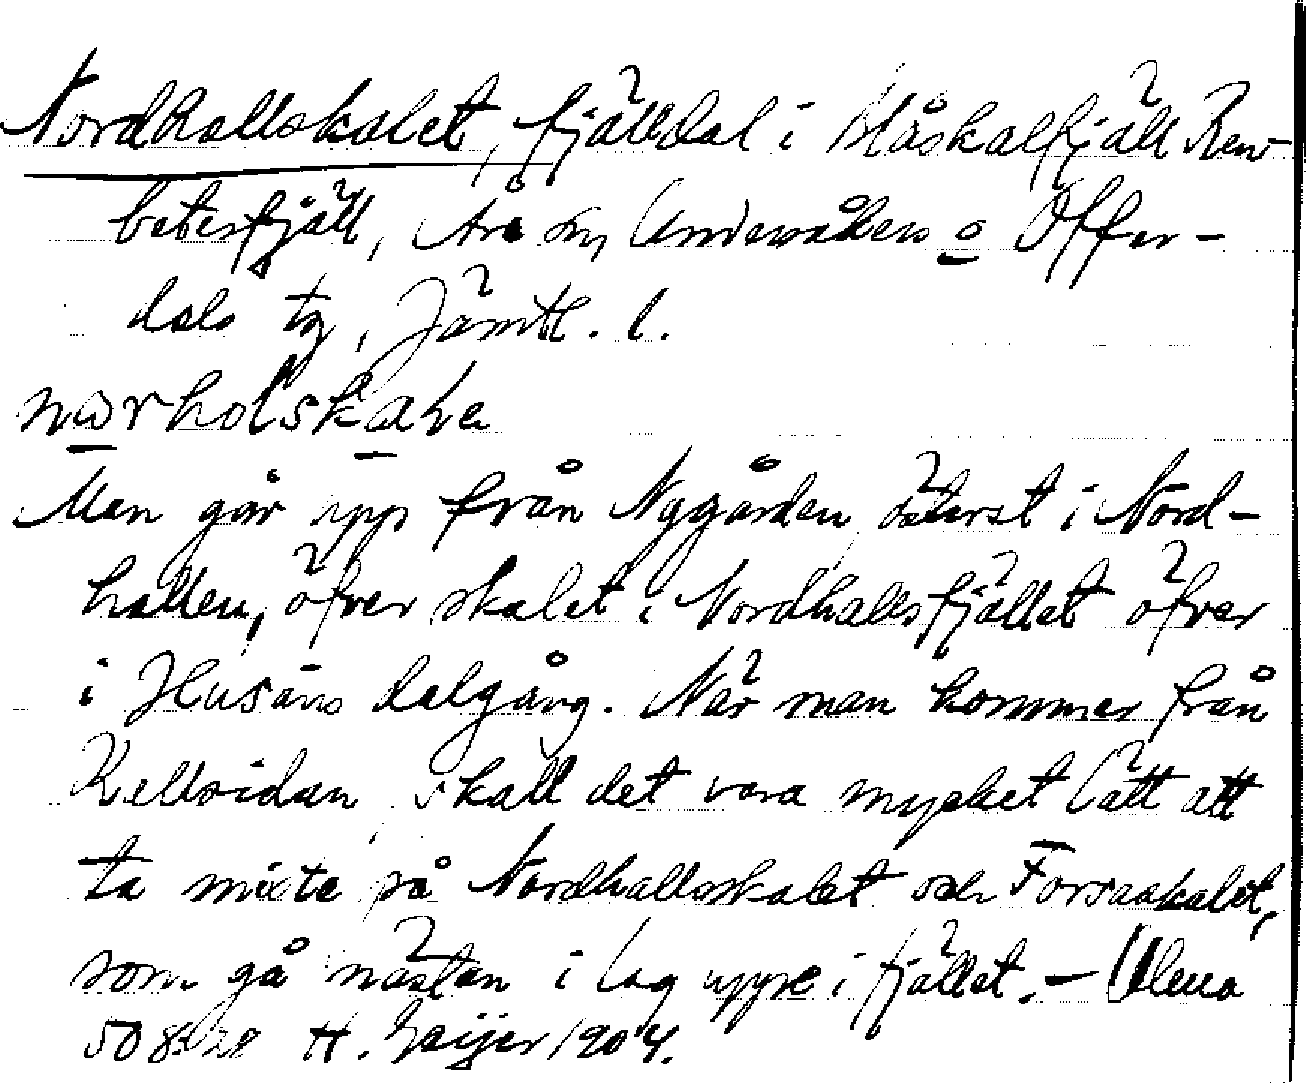 Nordhallskalet, fjälldal i Blåskalfjäll Ren-
betesfjäll, Åre sn, Undersåkers o Offer-
dals tg, Jämtl. l.
Man går upp från Nygården, österst i Nord-
hallen, öfver skalet i Nordhallsfjället öfver
i Husåns dalgång. När man kommer från
skall det vara mycket lätt att
ta miste på Nordhallsskalet och Forsaskalet,
som gå nästan i lag uppe i fjället. —
H. Geijer 1904.